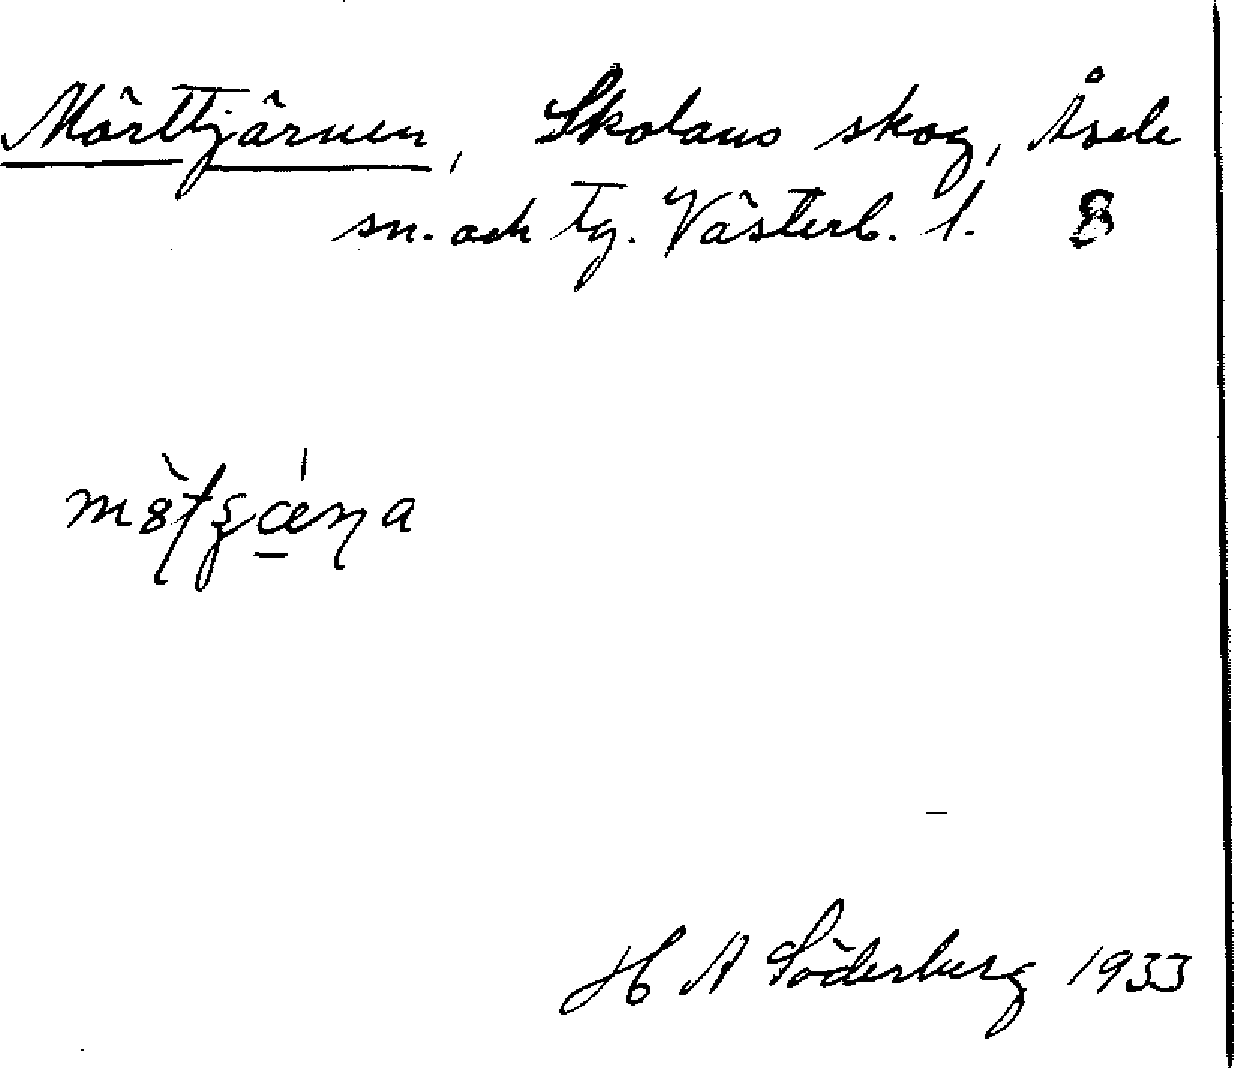 Mörttjärnen, Skolans skog, Åsele
sn. och tg. Västerb. l. 8
H A Söderberg 1933